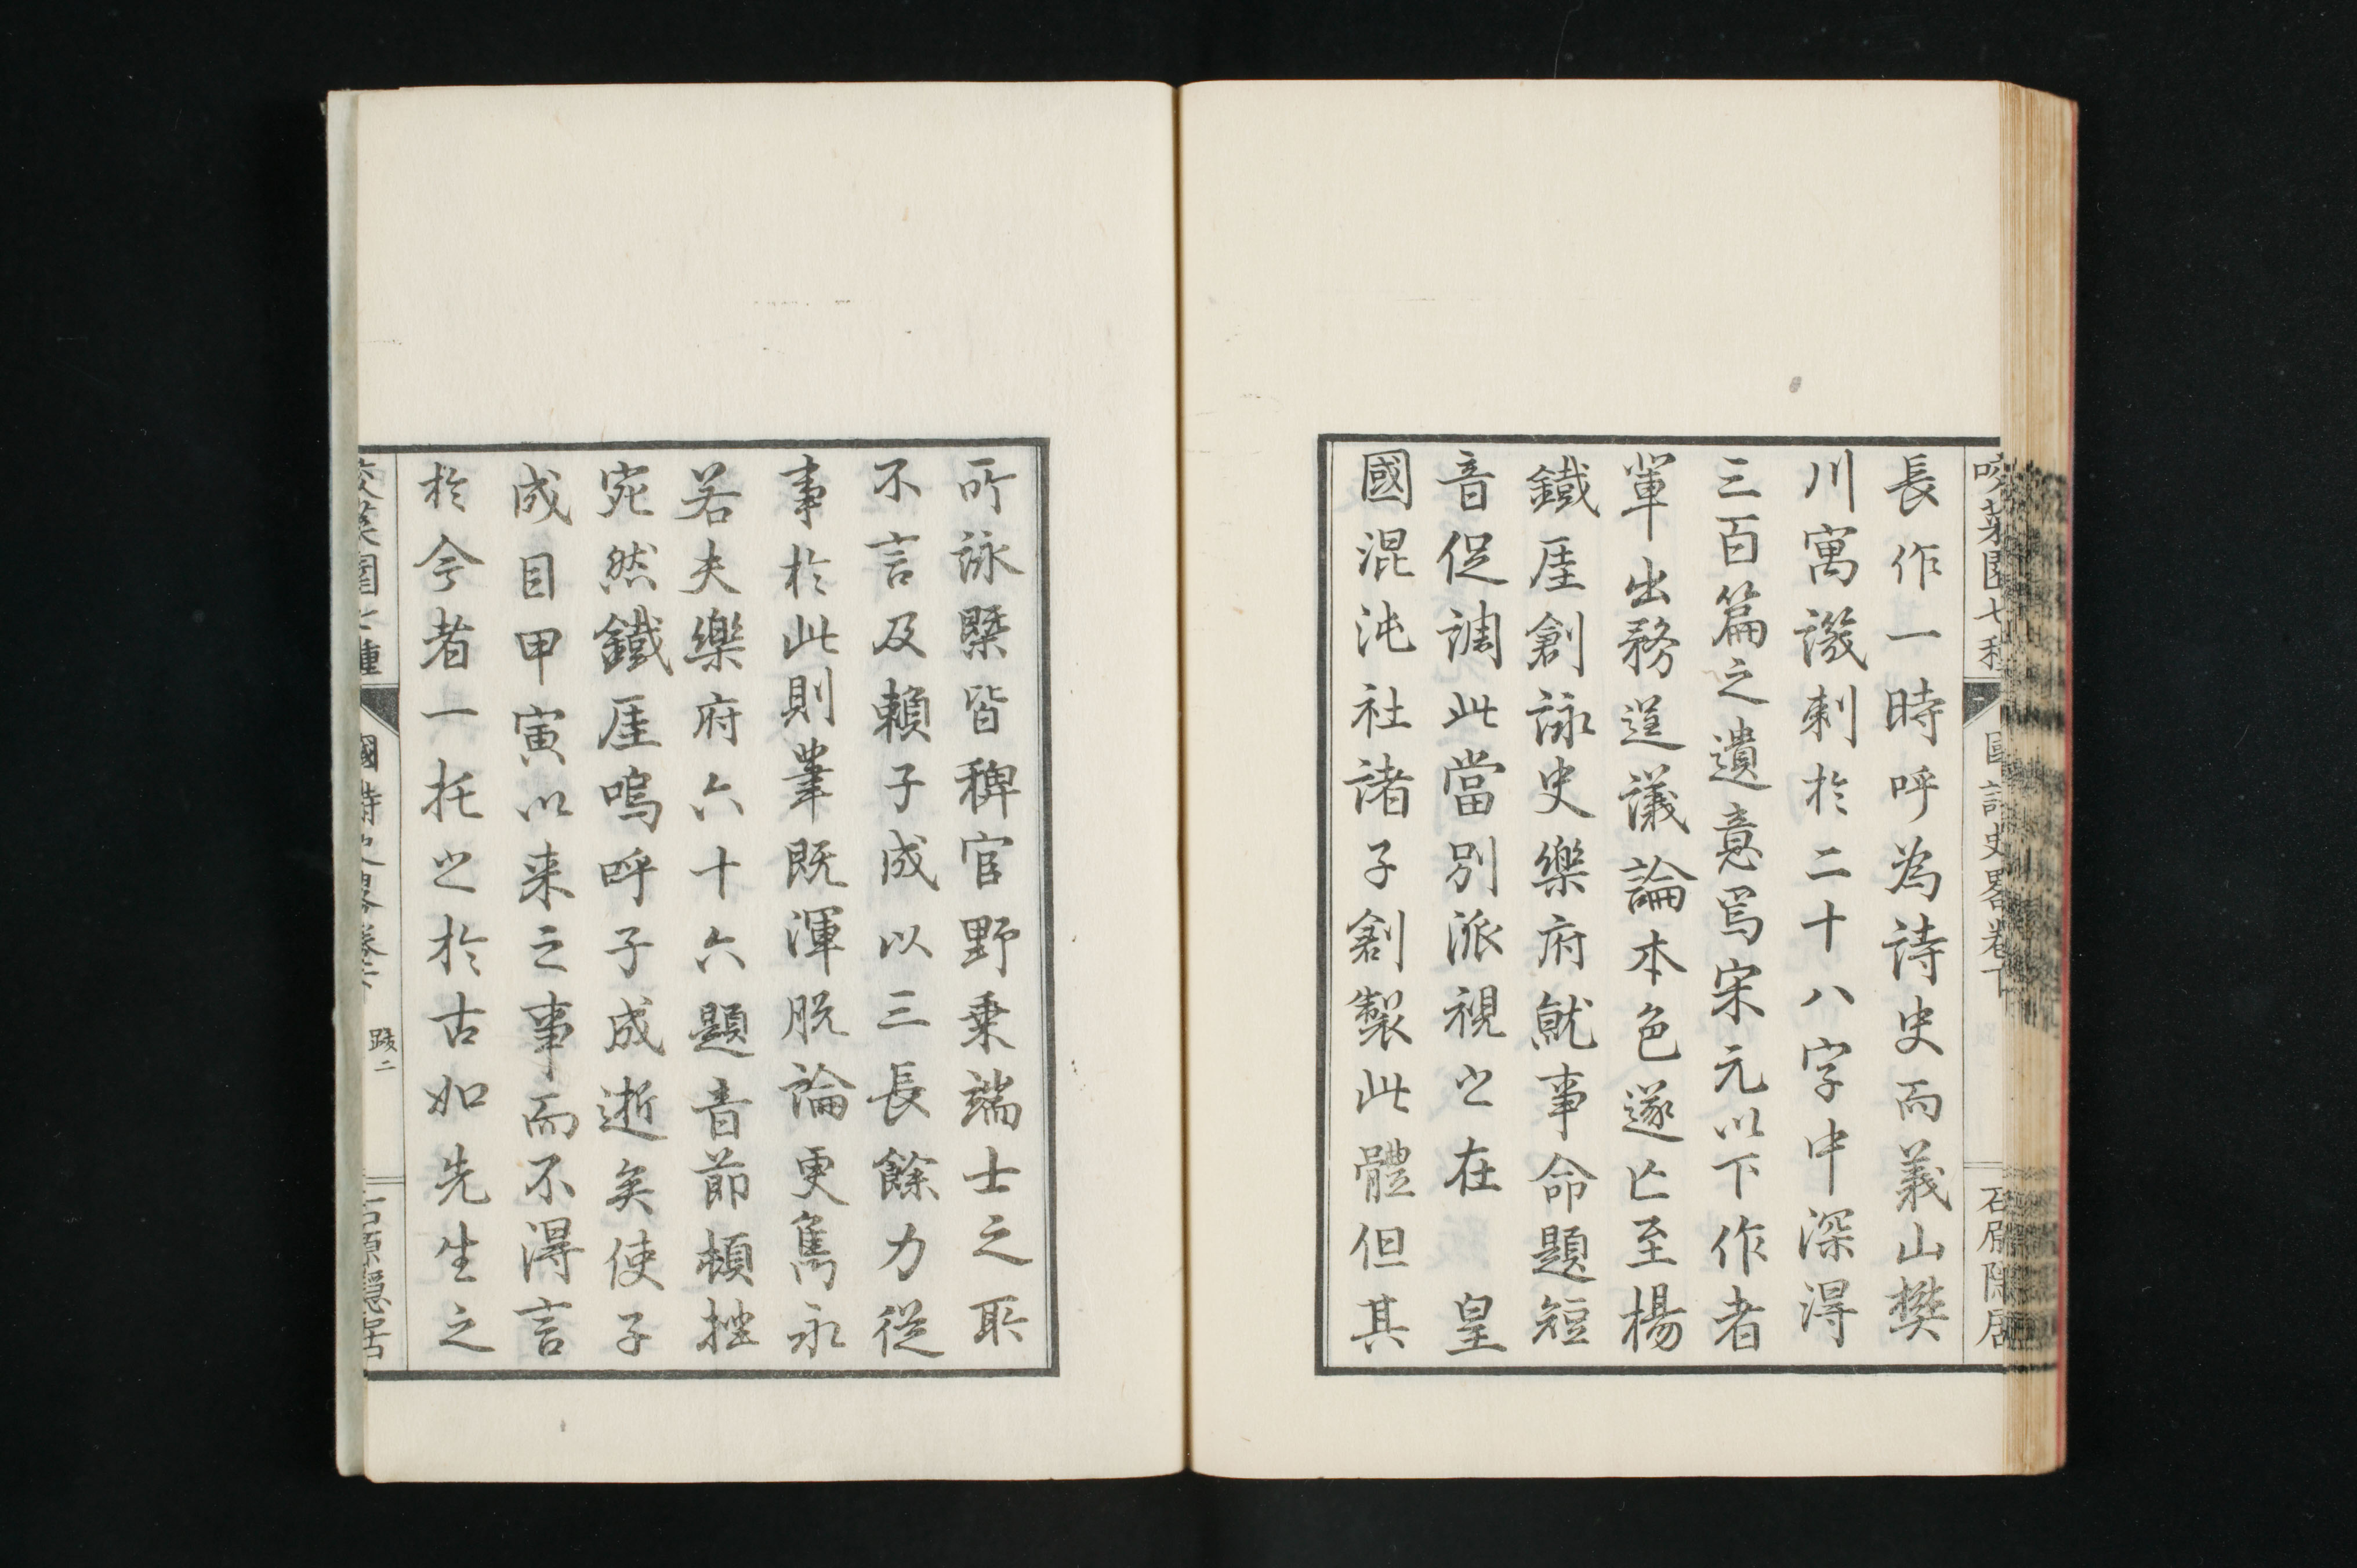 長作一時呼為詩史而義山樊
川寓譏刺於二十八字中深得
三百篇之遺意焉宋元以下作者
輩出務逞議論本色遂亡至楊
鐵厓創詠史樂府就事命題短
音促調此當別派視之在　皇
國混沌社諸子創製此體但其
所詠槩皆稗官野乗端士之恥
不言及賴子成以三長餘力從
事於此則筆既渾脱論更雋永
若夫樂府六十六題音節頓挫
宛然鐵厓嗚呼子成逝矣使子
成目甲寅以来之事而不得言
於今者一托之於古如先生之
國詩史畧卷下
跋二
石原隠居